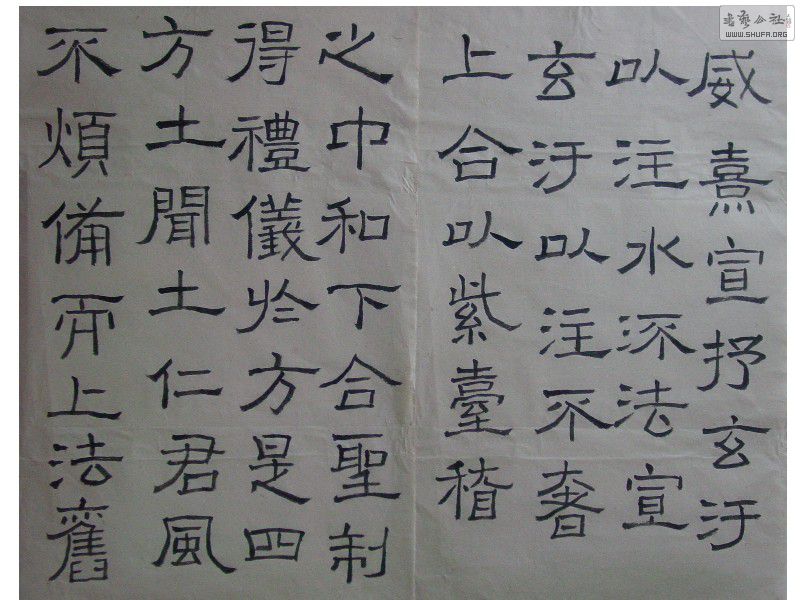 威熹宣抒玄汙
以注水流法宣
玄汙以注不奢
上合以紫臺稽
之中和下合聖制
得禮儀於方是四
方土聞土仁君風
不煩備而上法舊
书艺公社
WWW.SHUFA.ORG